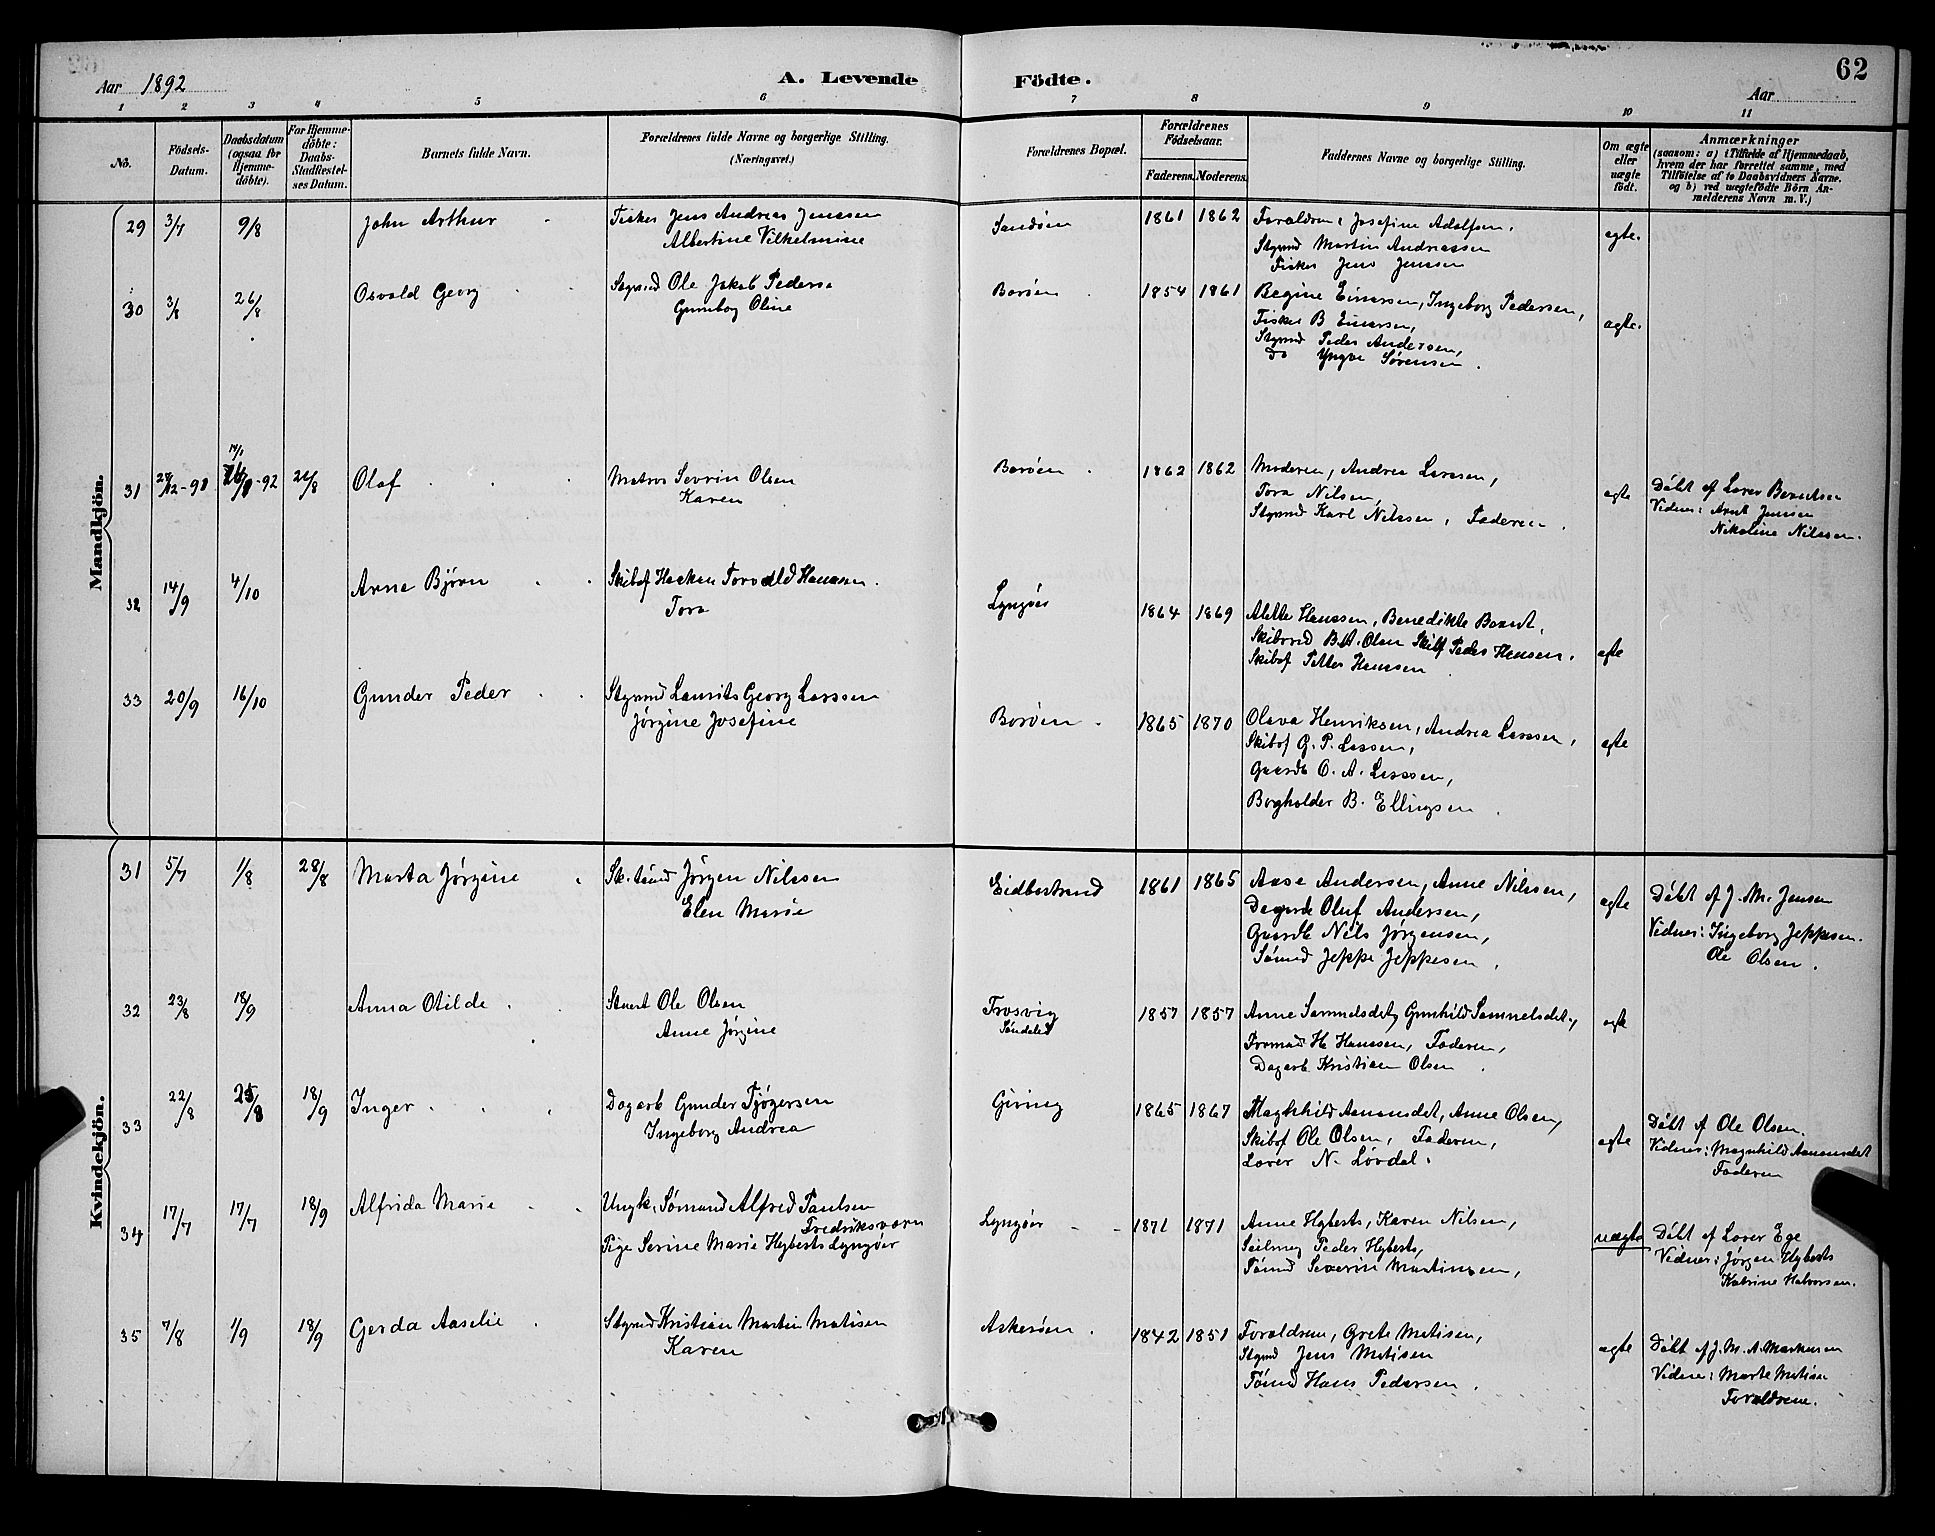 Aar 1892
A. Levende
Födte.
62
Aar
1 2 3 4 5 6 7 8 9 10 11
No.
Födsels-
Datum.
Daabsdatum
(ogsaa for
Hjemme-
döbte).
For Hjemme-
döbte:
Daabs-
Stadfæstel-
ses Datum.
Barnets fulde Navn.
Forældrenes fulde Navne og borgerlige Stilling.
(Næringsvei.)
Forældrenes Bopæl.
Forældrenes
Födselsaar.
Faderens. Moderens.
Faddernes Navne og borgerlige Stilling.
Om ægte
eller
uægte
födt.
Anmærkninger
(saasom: a) i Tilfælde af Hjemmedaab,
hvem der har forrettet samme, med
Tilföielse af to Daabsvidners Navne.
og b) ved uægtefödte Börn An-
melderens Navn m. V.)
Mandkjön.
29 3/7 9/8 John Arthur
Fisker Jens Andreas Jenssen
Albertine Vilhelmine
Sandøen 1861 1862
Forældrene, Josefine Adolfsen,
Stgmd Martin Andreassen
Fisker Jens Jenssen
ægte.
30 3/8 26/8 Osvald Georg
Stgmd Ole Jakob Pederse
Gunnbog Oline
Borøen 1854 1861
Regine Einersen, Ingeborg Pedersen,
Fisker B. Einersen,
Stgmd Peder Andersen,
do Yngve Sørensen.
ægte.
31 -92 21/8 Olaf
Matros Sevrin Olsen
Karen
Borøen 1862 1862
Moderen, Andrea Larssen,
Tora Nilsen,
Stgmd Karl Nilssen, Faderen.
ægte
Döbt af Lærer Berntsen
Vidner: Arnt Jenssen
Nikoline Nilssen.
32 14/9 4/10 Arne Bjørn
Skibsf Haaken Torvald Hanssen.
Tora
Lyngøer 1864 1869
Alette Hanssen, Benedikte Berent,
Skibsred B.A. Olsen Skibsf Peder Hansen.
Skibsf Petter Hanssen
ægte
33 20/9 16/10 Gunder Peder
Stgmd Laurits Georg Larssen
Jørgine Josefine
Borøen 1865 1870
Olava Henriksen, Andrea Larssen,
Skibsf G. P. Larssen,
Gaardb O. A. Larssen,
Bogholder B. Ellingsen.
ægte
Kvindekjön.
31 5/7 1/8 28/8 Marta Jørgine
Sk.tømd Jørgen Nilssen
Elen Marie
Eidbostrand 1861 1865
Aase Andersen, Anne Nilssen,
Dagarb Oluf Andersen,
Gaardb Nils Jørgensen,
Sømd Jeppe Jeppesen.
ægte
Döbt af J. M. Jensen
Vidner: Ingeborg Jeppesen.
Ole Olsen.
32 23/8 18/9 Anna Otilde
Stuert Ole Olsen
Anne Jørgine
Trosvig
Søndeled
1857 1857
Anne Samuelsdet, Gunhild Samuelsdet,
Formand H. Hanssen, Faderen,
Dagarb Kristian Olsen
ægte
33 22/8 25/8 18/9 Inger
Dagarb Gunder Tjøgersen
Ingeborg Andrea
Giving 1865 1867
Magnhild Aanensdet, Anne Olsen,
Skibsf Ole Olsen, Faderen,
Lærer N. Løvdal.
ægte
Döbt af Ole Olsen.
Vidner: Magnhild Aanensdet
Faderen
34 17/7 17/7 18/9 Alfrida Marie
Ungk. Sømand Alfred Paulsen
Fredriksværn
Pige Serine Marie Hyberts Lyngøer
Lyngøer 1871 1871
Anne Hyberts, Karen Nilsen,
Seilmag Peder Hyberts,
Tømd Severin Martinsen,
uægte
Döbt af Lærer Ege
Vidner: Jørgen Hyberts
Katrine Halvorsen.
35 7/8 1/9 18/9 Gerda Aaselie
Stgmd Kristian Martin Matisen
Karen
Askerøen 1842 1851
Forældrene, Grete Matisen,
Stgmd Jens Matisen
Tømd Hans Pedersen.
ægte
Döbt af J. M. A. Markussen
Vidner: Marte Matisen
Forældrene.